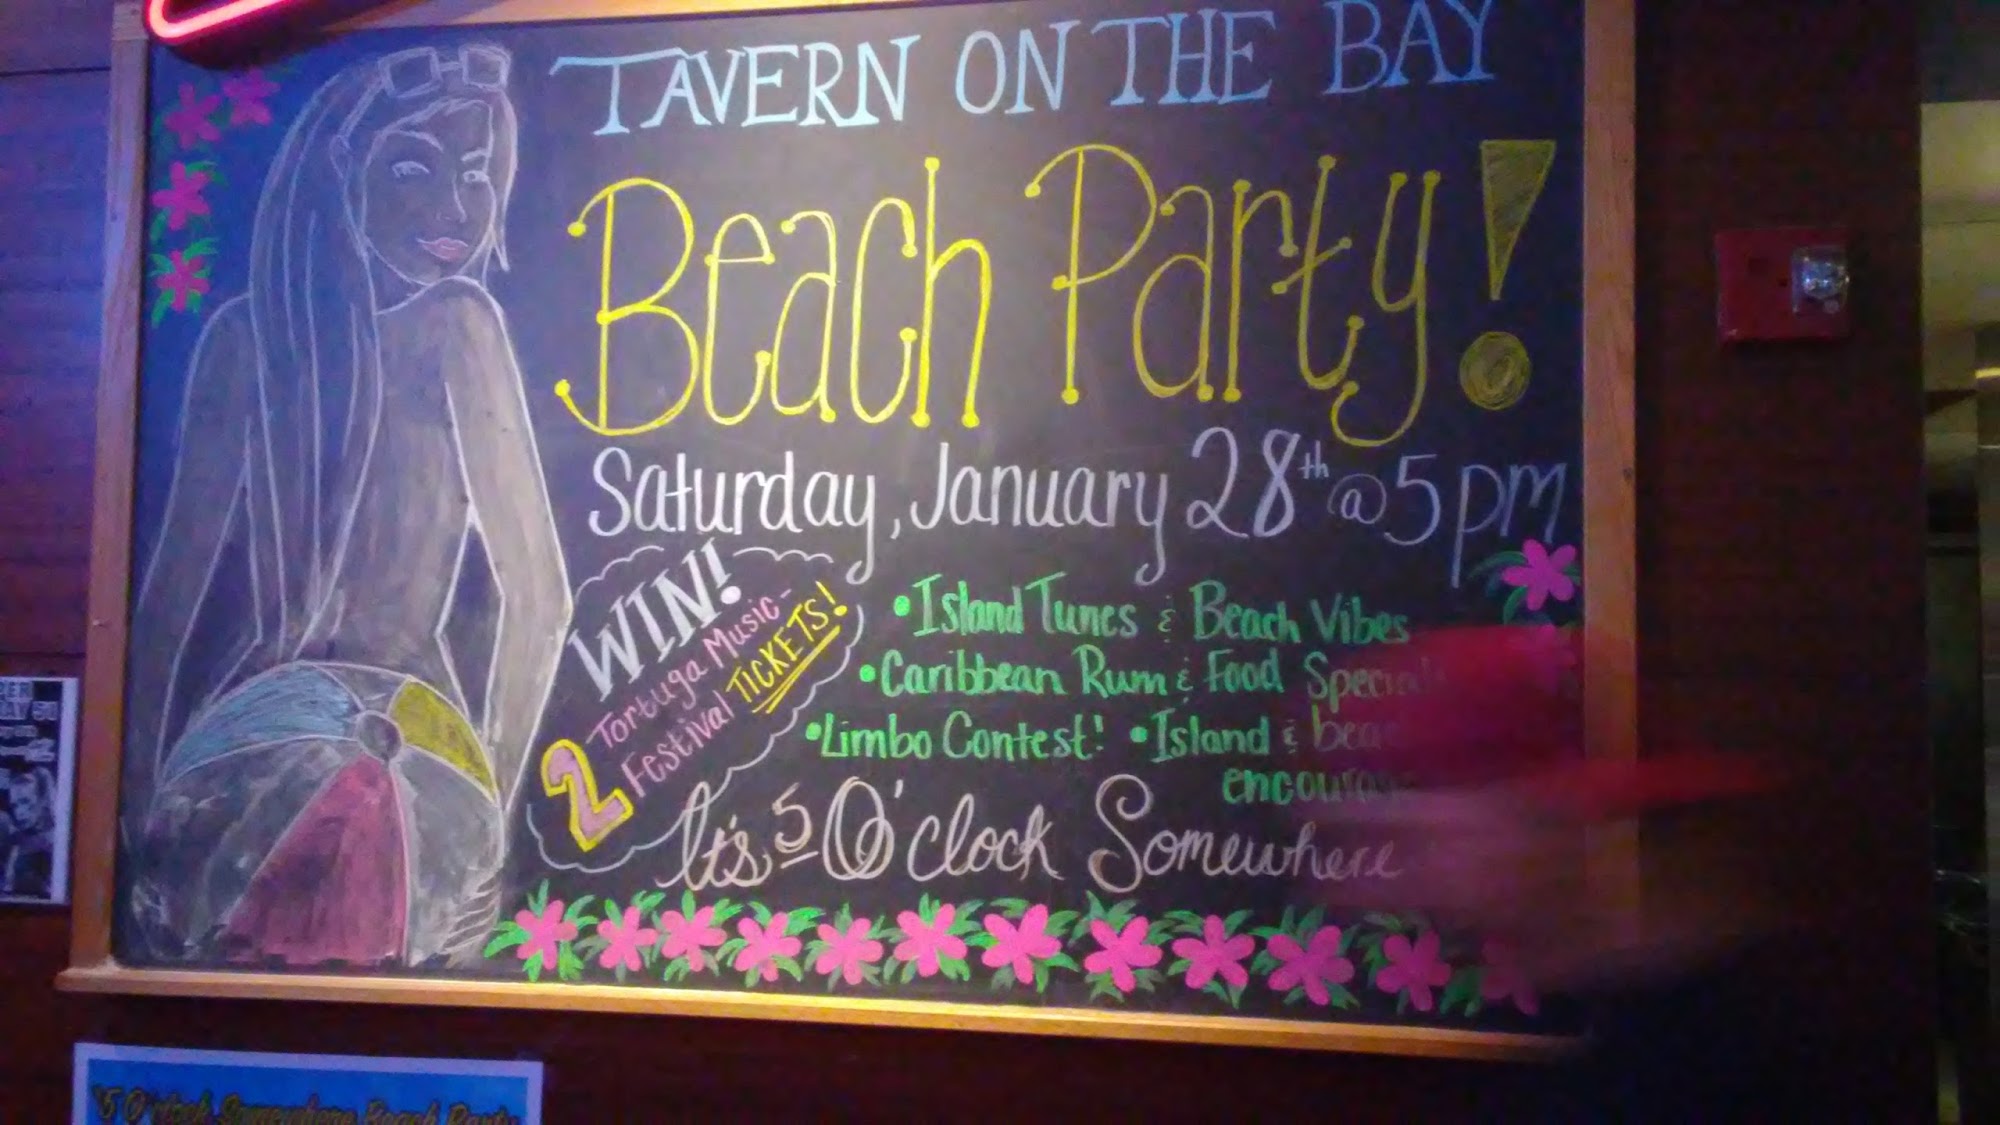 TAVERN ON THE BAY
Beach Party!
Saturday, January 28th @ 5pm
WIN!
2 Tortuga Music-
Festival TICKETS!
• Island Tunes & Beach Vibes
• Caribbean Rum & Food
• Limbo Contest! • Island &
It's 5 O'clock Somewhere
'5 O'clock Somewhere Beach Party